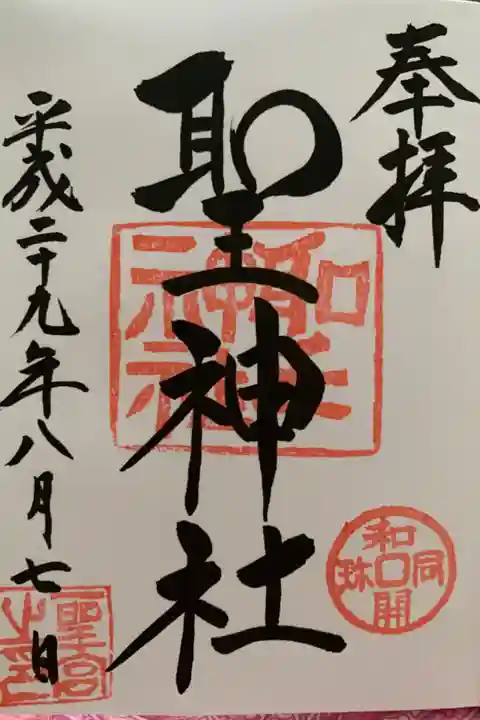 奉拝
聖神社
平成二十九年八月七日
和同開珎
聖宮之印